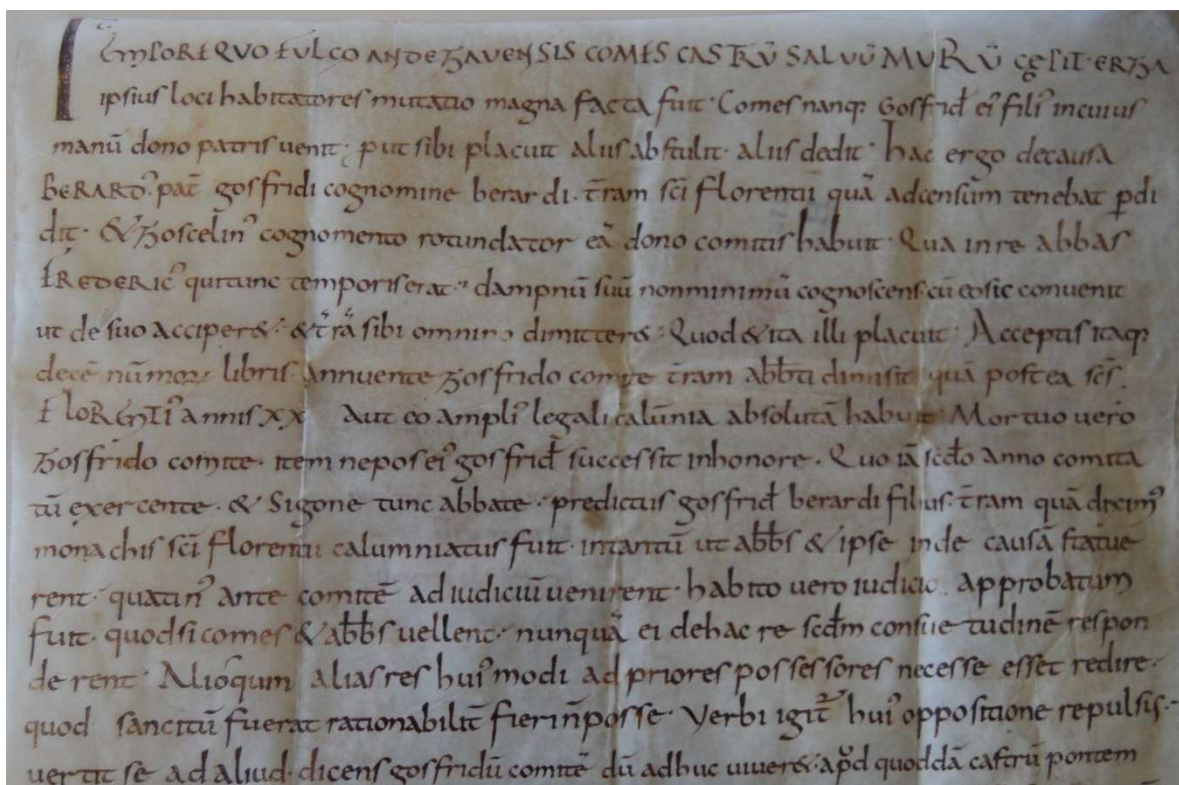 TEMPORE QUO FULCO ANDEGAVENSIS COMES CASTRŪ SALVŪ MURŪ CĘPIT · ERGA
ipsius loci habitatores mutatio magna facta fuit · Comes nanq; Gosfrid' ei' fili' in cuius
manū dono patris venit · p ut sibi placuit aliis abstulit · aliis dedit · hac ergo de causa
BERARD' pat̄ gosfridi cognomine berardi · t̄ram sc̄i florentii quā ad censum tenebat p̱di
dit · & Goscelin' cognomento rotundator eā dono comitis habuit · Qua in re abbas
FREDERIC' qui tunc temporis erat · dampnū suū non minimū cognoscens · cū eo sic convenit
ut de suo acciper& · & t̄rā sibi omnino dimitter& · Quod & ita illi placuit · Acceptis itaq;
decē nūmoꝝ libris · Annuente Gosfrido comite t̄ram abb̄ti dimisit quā postea sc̄s
FLORENTI' annis xx Aut eo ampli' legali calūnia absolutā habuit · Mortuo vero
Gosfrido comite · item nepos ei' gosfrid' successit in honore · Quo iā sc̄do anno comita
tū exercente · & Sigone tunc abbate · predictus gosfrid' berardi filius · t̄ram quā dixim'
monachis sc̄i florentii calumniatus fuit · intantū ut abb̄s & ipse inde causā statue
rent · quatin' ante comitē ad iudiciū venirent · habito vero iudicio approbatum
fuit · quod si comes & abb̄s vellent · nunquā ei de hac re scd̄m consuetudinē respon
derent · Alioquin alias res hui'modi ad priores possessores necesse esset redire ·
quod sancitū fuerat rationabilit̄ fieri n̄ posse · Verbi igit̄ hui' oppositione repulsis ·
vertit se ad aliud · dicens gosfridū comitē dū adhuc viver& · apud quoddā castrū pontem